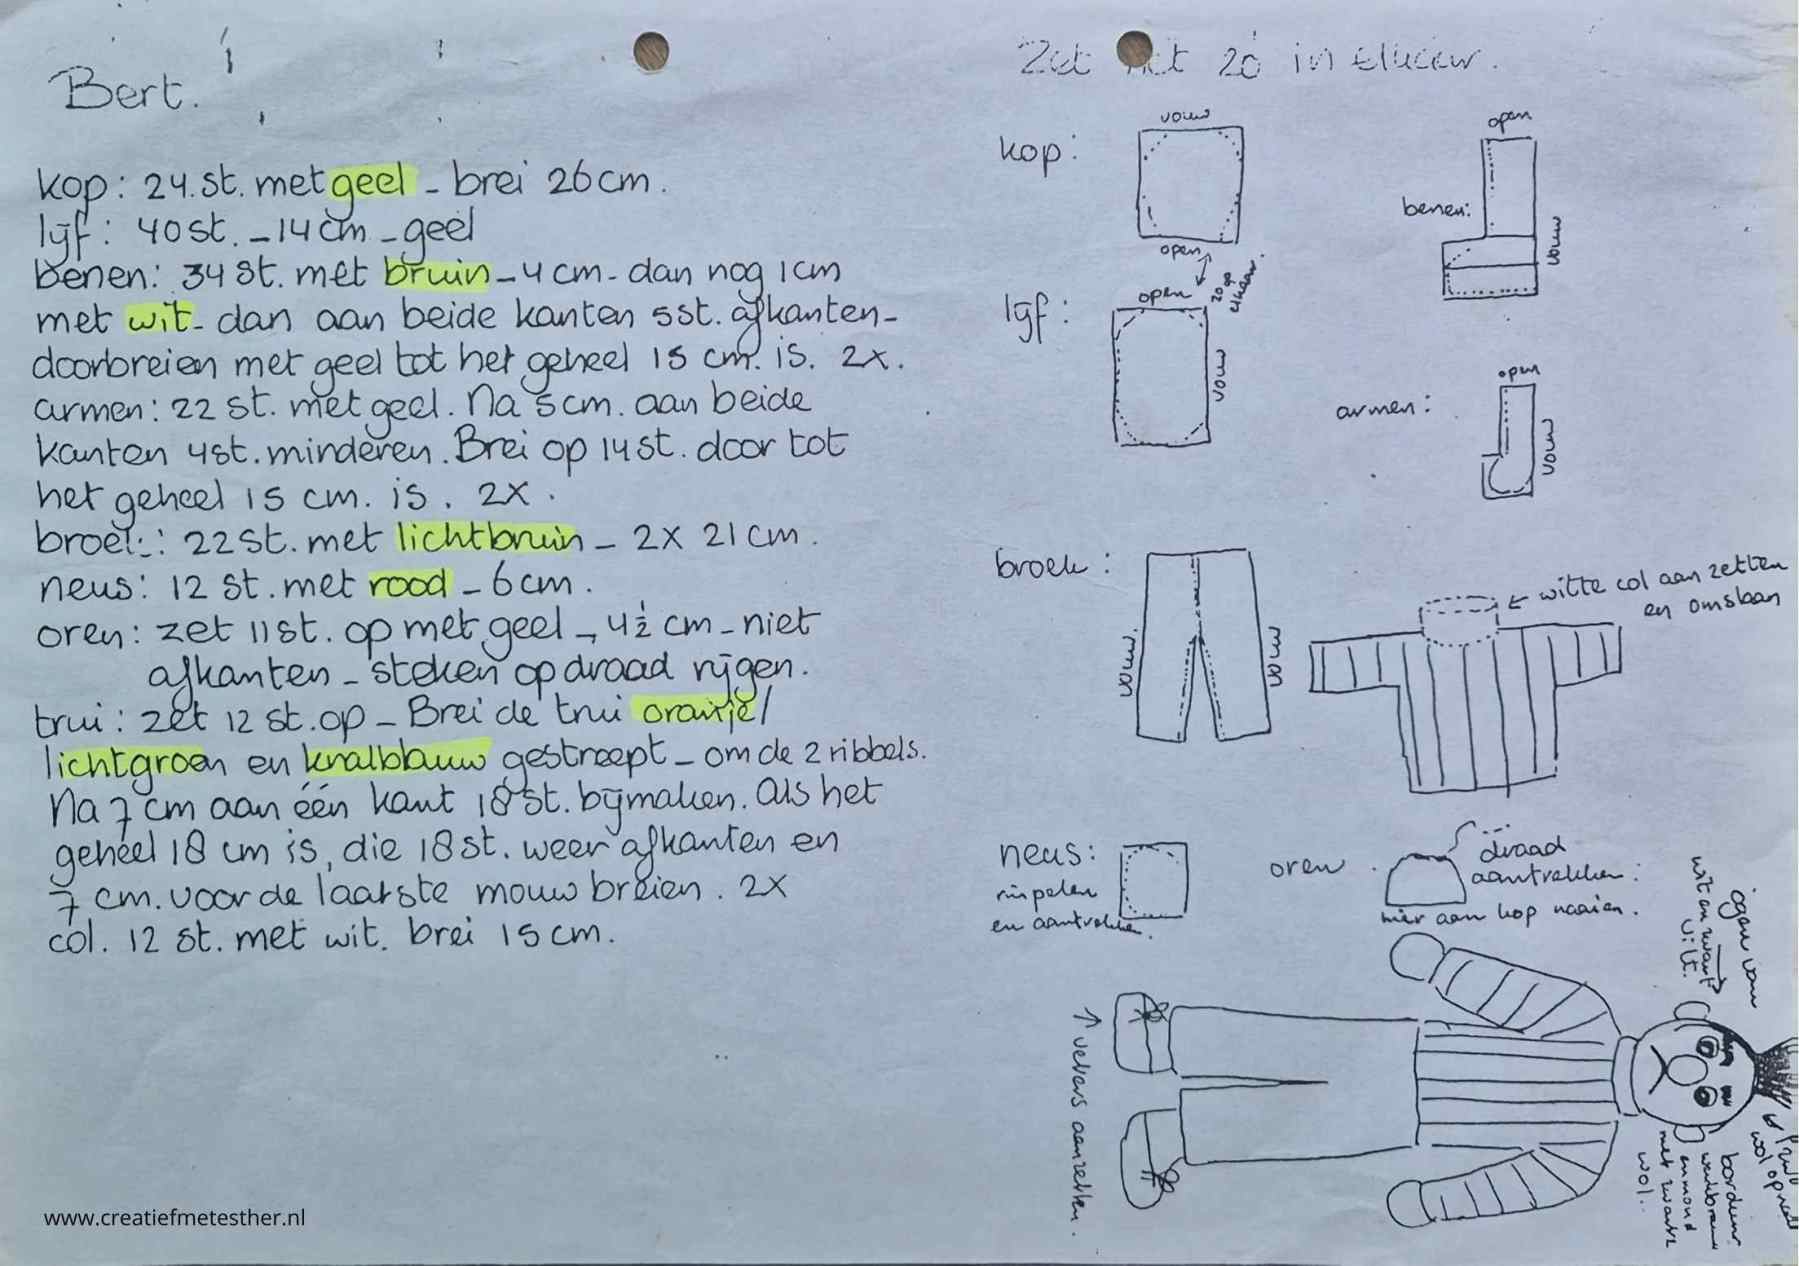 Bert.
kop: 24.st. met geel - brei 26 cm.
lijf: 40 st. - 14 cm - geel
benen: 34 st. met bruin - 4 cm - dan nog 1 cm
met wit - dan aan beide kanten 5 st. afkanten -
doorbreien met geel tot het geheel 15 cm. is. 2x.
armen: 22 st. met geel. Na 5 cm. aan beide
kanten 4 st. minderen. Brei op 14 st. door tot
het geheel 15 cm. is. 2x.
broek: 22 st. met lichtbruin - 2x 21 cm.
neus: 12 st. met rood - 6 cm.
oren: zet 11 st. op met geel - 4½ cm - niet
afkanten - steken op draad rijgen.
trui: zet 12 st. op - Brei de trui oranje/
lichtgroen en knalblauw gestreept - om de 2 ribbels.
Na 7 cm aan één kant 18 st. bijmaken. Als het
geheel 18 cm is, die 18 st. weer afkanten en
7 cm. voor de laatste mouw breien. 2x
col. 12 st. met wit. brei 15 cm.
Zet het zó in elkaar.
kop:
vouw
open
lijf:
open
zo op elkaar.
vouw
benen:
open
vouw
armen:
open
vouw
broek:
vouw.
vouw
witte col aan zetten
en omslaan
neus:
rimpelen
en aantrekken.
oren.
draad
aantrekken.
hier aan kop naaien.
ogen van
wit en zwart
vilt.
veters aanzetten.
borduur
wenkbrauw
en mond
met zwarte
wol.
wol op
www.creatiefmetesther.nl